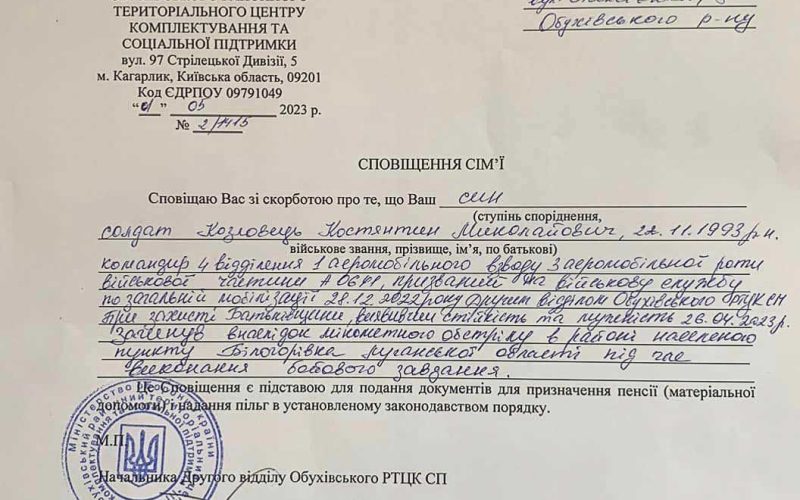 ТЕРИТОРІАЛЬНОГО ЦЕНТРУ
КОМПЛЕКТУВАННЯ ТА
СОЦІАЛЬНОЇ ПІДТРИМКИ
вул. 97 Стрілецької Дивізії, 5
м. Кагарлик, Київська область, 09201
Код ЄДРПОУ 09791049
“01” 05 2023 р.
№ 2/1415
Обухівського р-ну
СПОВІЩЕННЯ СІМ’Ї
Сповіщаю Вас зі скорботою про те, що Ваш син
(ступінь споріднення,
солдат Козловець Костянтин Миколайович, 22.11.1993 р.н.
військове звання, прізвище, ім’я, по батькові)
командир 4 відділення 1 аеромобільного взводу 3 аеромобільної роти
військової частини призваний на військову службу
по загальній мобілізації 28.12.2022 року Другим відділом Обухівського РТЦК СП
При захисті Батьківщини, виявивши стійкість та мужність 26.04.2023р.
загинув внаслідок мінометного обстрілу в районі населеного
пункту Білогорівка Луганської області під час
виконання бойового завдання.
Це Сповіщення є підставою для подання документів для призначення пенсії (матеріальної
допомоги) і надання пільг в установленому законодавством порядку.
М.П.
Начальника Другого відділу Обухівського РТЦК СП